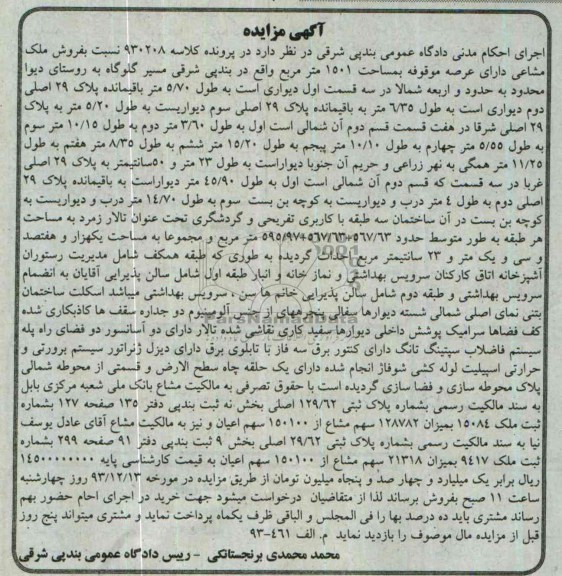 آگهی مزایده
اجرای احکام مدنی دادگاه عمومی بندپی شرقی در نظر دارد در پرونده کلاسه ۹۳۰۲۰۸ نسبت بفروش ملک
مشاعی دارای عرصه موقوفه بمساحت ۱۵۰۱ متر مربع واقع در بندپی شرقی مسیر گلوگاه به روستای دیوا
محدود به حدود و اربعه شمالا در سه قسمت اول دیواری است به طول ۵/۷۰ متر باقیمانده پلاک ۲۹ اصلی
دوم دیواری است به طول ۶/۳۵ متر به باقیمانده پلاک ۲۹ اصلی سوم دیواریست به طول ۵/۲۰ متر به پلاک
۲۹ اصلی شرقا در هفت قسمت قسم دوم آن شمالی است اول به طول ۳/۶۰ متر دوم به طول ۱۰/۱۵ متر سوم
به طول ۵/۵۵ متر چهارم به طول ۱۰/۱۰ متر پیجم به طول ۱۵/۲۰ متر ششم به طول ۸/۳۵ متر هفتم به طول
۱۱/۲۵ متر همگی به نهر زراعی و حریم آن جنوبا دیواراست به طول ۲۳ متر و ۵۰سانتیمتر به پلاک ۲۹ اصلی
غربا در سه قسمت که قسم دوم آن شمالی است اول به طول ۴۵/۹۰ متر دیواراست به باقیمانده پلاک ۲۹
اصلی دوم به طول ۴ متر درب و دیواریست به کوچه بن بست سوم به طول ۱۴/۷۰ متر درب و دیواریست به
کوچه بن بست در آن ساختمان سه طبقه با کاربری تفریحی و گردشگری تحت عنوان تالار زمرد به مساحت
هر طبقه به طور متوسط حدود ۵۶۷/۶۳+۵۶۷/۶۳+۵۹۵/۹۷ متر مربع و مجموعا به مساحت یکهزار و هفتصد
و سی و یک متر و ۲۳ سانتیمتر مربع احداث گردیده به طوری که طبقه همکف شامل مدیریت رستوران
آشپزخانه اتاق کارکنان سرویس بهداشتی و نماز خانه و انبار طبقه اول شامل سالن پذیرایی آقایان به انضمام
سرویس بهداشتی و طبقه دوم شامل سالن پذیرایی خانم ها سن ، سرویس بهداشتی میباشد اسکلت ساختمان
بتنی نمای اصلی شمالی شسته دیوارها سفالی پنجرههای از جنس آلومینیوم دو جداره سقف ها کاذبکاری شده
کف فضاها سرامیک پوشش داخلی دیوارها سفید کاری نقاشی شده تالار دارای دو آسانسور دو فضای راه پله
سیستم فاضلاب سپتینگ تانگ دارای کنتور برق سه فاز با تابلوی برق دارای دیزل ژنراتور سیستم برورتی و
حرارتی اسپیلیت لوله کشی شوفاژ انجام شده دارای یک حلقه چاه سطح الارض و قسمتی از محوطه شمالی
پلاک محوطه سازی و فضا سازی گردیده است با حقوق تصرفی به مالکیت مشاع بانک ملی شعبه مرکزی بابل
به سند مالکیت رسمی بشماره پلاک ثبتی ۱۲۹/۶۲ اصلی بخش نه ثبت بندپی دفتر ۱۳۵ صفحه ۱۲۷ بشماره
ثبت ملک ۱۵۰۸۴ بمیزان ۱۲۸۷۸۲ سهم مشاع از ۱۵۰۱۰۰ سهم اعیان و نیز به مالکیت مشاع آقای عادل یوسف
نیا به سند مالکیت رسمی بشماره پلاک ثبتی ۲۹/۶۲ اصلی بخش ۹ ثبت بندپی دفتر ۹۱ صفحه ۲۹۹ بشماره
ثبت ملک ۹۴۱۷ بمیزان ۲۱۳۱۸ سهم مشاع از ۱۵۰۱۰۰ سهم اعیان به قیمت کارشناسی پایه ۱۴۵۰۰۰۰۰۰۰۰
ریال برابر یک میلیارد و چهار صد و پنجاه میلیون تومان از طریق مزایده در مورخه ۹۳/۱۲/۱۳ روز چهارشنبه
ساعت ۱۱ صبح بفروش برساند لذا از متقاضیان درخواست میشود جهت خرید در اجرای احام حضور بهم
رساند مشتری باید ده درصد بها را فی المجلس و الباقی ظرف یکماه پرداخت نماید و مشتری میتواند پنج روز
قبل از مزایده مال موصوف را بازدید نماید م. الف ۴۶۱-۹۳
محمد محمدی برنجستانکی - رییس دادگاه عمومی بندپی شرقی